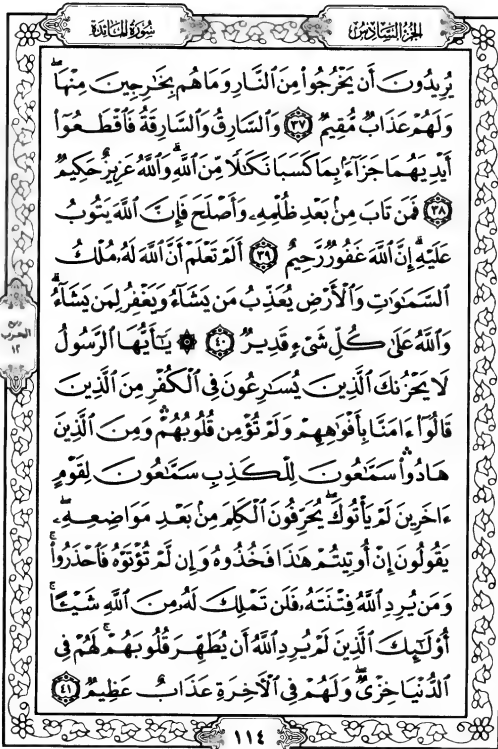 الجزء السادس
سورة المائدة
يُرِيدُونَ أَن يَخْرُجُوا۟ مِنَ ٱلنَّارِ وَمَا هُم بِخَٰرِجِينَ مِنْهَا ۖ
وَلَهُمْ عَذَابٌ مُّقِيمٌ ٣٧ وَٱلسَّارِقُ وَٱلسَّارِقَةُ فَٱقْطَعُوٓا۟
أَيْدِيَهُمَا جَزَآءًۢ بِمَا كَسَبَا نَكَٰلًا مِّنَ ٱللَّهِ ۗ وَٱللَّهُ عَزِيزٌ حَكِيمٌ
٣٨ فَمَن تَابَ مِنۢ بَعْدِ ظُلْمِهِۦ وَأَصْلَحَ فَإِنَّ ٱللَّهَ يَتُوبُ
عَلَيْهِ ۗ إِنَّ ٱللَّهَ غَفُورٌ رَّحِيمٌ ٣٩ أَلَمْ تَعْلَمْ أَنَّ ٱللَّهَ لَهُۥ مُلْكُ
ٱلسَّمَٰوَٰتِ وَٱلْأَرْضِ يُعَذِّبُ مَن يَشَآءُ وَيَغْفِرُ لِمَن يَشَآءُ ۗ
وَٱللَّهُ عَلَىٰ كُلِّ شَىْءٍ قَدِيرٌ ٤٠ ۞ يَٰٓأَيُّهَا ٱلرَّسُولُ
لَا يَحْزُنكَ ٱلَّذِينَ يُسَٰرِعُونَ فِى ٱلْكُفْرِ مِنَ ٱلَّذِينَ
قَالُوٓا۟ ءَامَنَّا بِأَفْوَٰهِهِمْ وَلَمْ تُؤْمِن قُلُوبُهُمْ ۛ وَمِنَ ٱلَّذِينَ
هَادُوا۟ ۛ سَمَّٰعُونَ لِلْكَذِبِ سَمَّٰعُونَ لِقَوْمٍ
ءَاخَرِينَ لَمْ يَأْتُوكَ ۖ يُحَرِّفُونَ ٱلْكَلِمَ مِنۢ بَعْدِ مَوَاضِعِهِۦ ۖ
يَقُولُونَ إِنْ أُوتِيتُمْ هَٰذَا فَخُذُوهُ وَإِن لَّمْ تُؤْتَوْهُ فَٱحْذَرُوا۟ ۚ
وَمَن يُرِدِ ٱللَّهُ فِتْنَتَهُۥ فَلَن تَمْلِكَ لَهُۥ مِنَ ٱللَّهِ شَيْـًٔا ۚ
أُو۟لَٰٓئِكَ ٱلَّذِينَ لَمْ يُرِدِ ٱللَّهُ أَن يُطَهِّرَ قُلُوبَهُمْ ۚ لَهُمْ فِى
ٱلدُّنْيَا خِزْىٌ ۖ وَلَهُمْ فِى ٱلْـَٔاخِرَةِ عَذَابٌ عَظِيمٌ ٤١
ربع
الحزب
١٢
١١٤